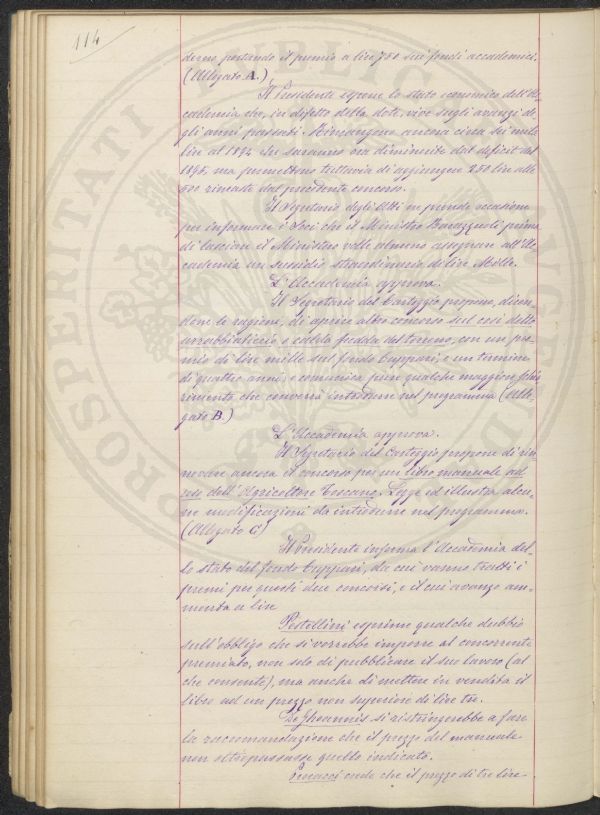 114
derno portando il premio a lire 750 sui fondi accademici.
(Allegato A.)
Il Presidente espone lo stato economico dell'Ac-
cademia che, in difetto della dote, vive sugli avanzi de-
gli anni passati. Rimangono ancora circa sei mila
lire al 1894 che saranno ora diminuite dal deficit del
1895, ma permettono tuttavia di aggiungere 250 lire alle
500 rimaste dal precedente concorso.
Il Segretario degli Atti ne prende occasione
per informare i Soci che il Ministro Barazzuoli prima
di lasciare il Ministero volle almeno assegnare all'Ac-
cademia un sussidio straordinario di lire Mille.
L'Accademia approva.
Il Segretario del Carteggio propone, dicen-
done le ragioni, di aprire altro concorso sul così detto
arrabbiaticcio o caldafredda del terreno, con un pre-
mio di lire mille sul fondo Cuppari, e un termine
di quattro anni; e comunica pure qualche maggiore schia-
rimento che converrà introdurre nel programma (Alle-
gato B.)
L'Accademia approva.
Il Segretario del Carteggio propone di rin-
novare ancora il concorso per un libro manuale ad
uso dell'Agricoltore Toscano. Legge ed illustra alcu-
ne modificazioni da introdurre nel programma.
(Allegato C.)
Il Presidente informa l'Accademia del-
lo stato del fondo Cuppari, da cui vanno tratti i
premi per questi due concorsi, e il cui avanzo am-
monta a lire
Pestellini esprime qualche dubbio
sull'obbligo che si vorrebbe imporre al concorrente
premiato, non solo di pubblicare il suo lavoro (al
che consente), ma anche di mettere in vendita il
libro ad un prezzo non superiore di lire tre.
De Johannis si ristringerebbe a fare
la raccomandazione che il prezzo del manuale
non oltrepassasse quello indicato.
crede che il prezzo di tre lire
PROSPERITATI PUBLICAE AUGENDAE